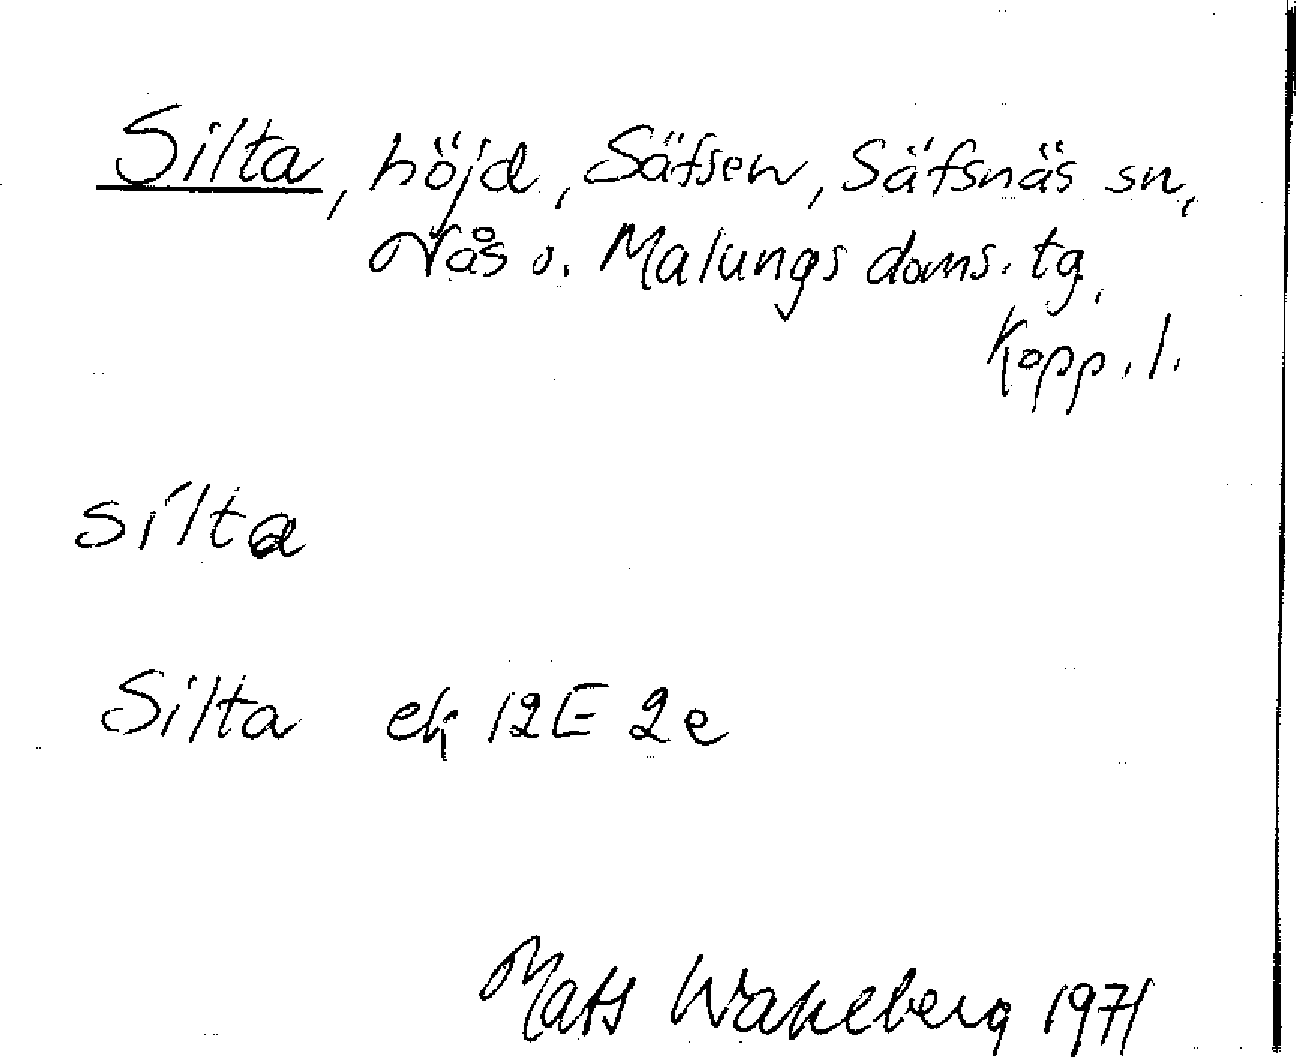 Silta, höjd, Säfsen, Säfsnäs sn,
Nås o. Malungs doms. tg,
Kopp. l.
silta
Silta ek 12E 2e
Mats Wahlberg 1971